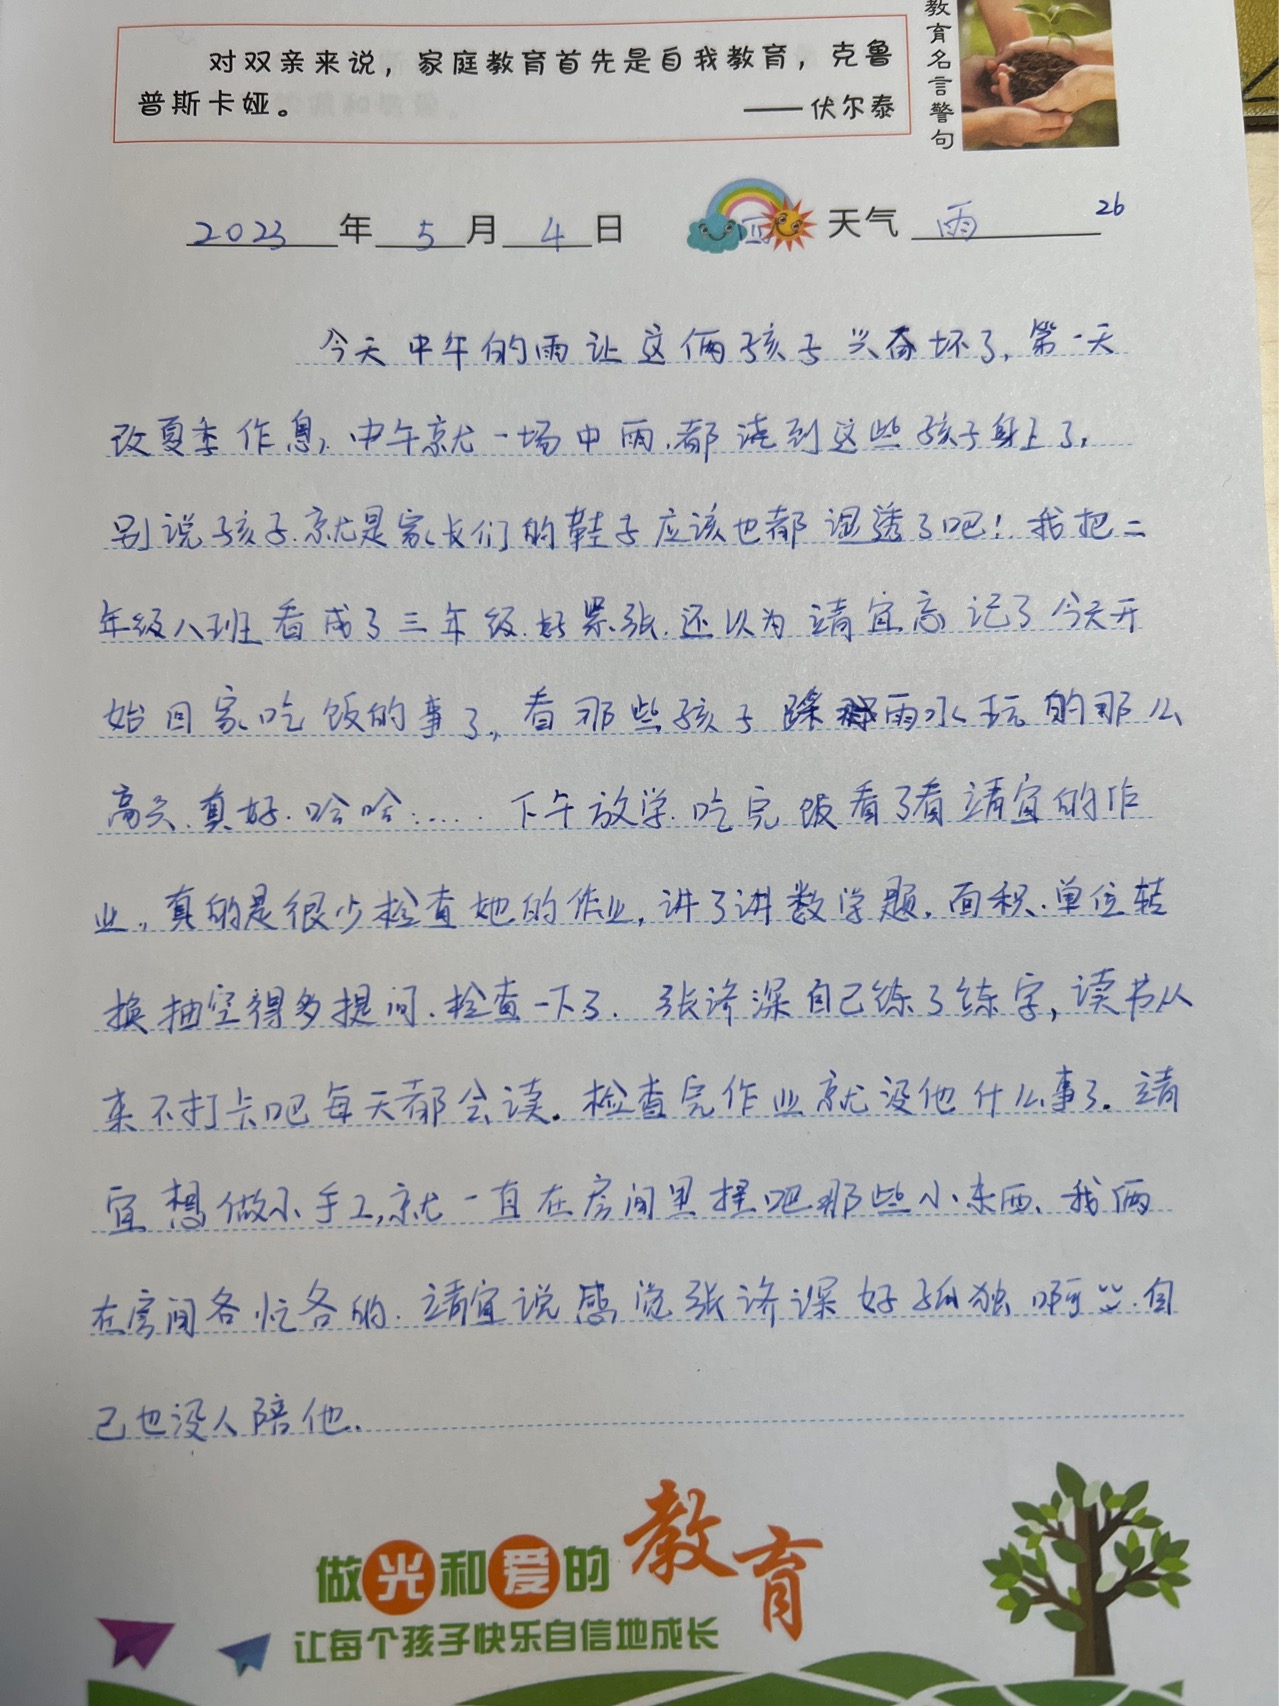 对双亲来说，家庭教育首先是自我教育，克鲁
普斯卡娅。 ——伏尔泰
教育名言警句
2023年5月4日 天气 雨 26
今天中午的雨让这俩孩子兴奋坏了，第一天
改夏季作息，中午就一场中雨，都浇到这些孩子身上了，
别说孩子，就是家长们的鞋子应该也都湿透了吧！我把二
年级八班看成了三年级，好紧张，还以为靖宜忘记了今天开
始回家吃饭的事了，看那些孩子踩雨水玩的那么
高兴，真好，哈哈……下午放学，吃完饭看了看靖宜的作
业，真的是很少检查她的作业，讲了讲数学题，面积，单位转
换抽空得多提问，检查一下了，张济深自己练了练字，读书从
来不打卡吧每天都会读。检查完作业就没他什么事了。靖
宜想做小手工，就一直在房间里捏吧那些小东西，我俩
在房间各忙各的，靖宜说感觉张济深好孤独啊，自
己也没人陪他。
做光和爱的教育
让每个孩子快乐自信地成长